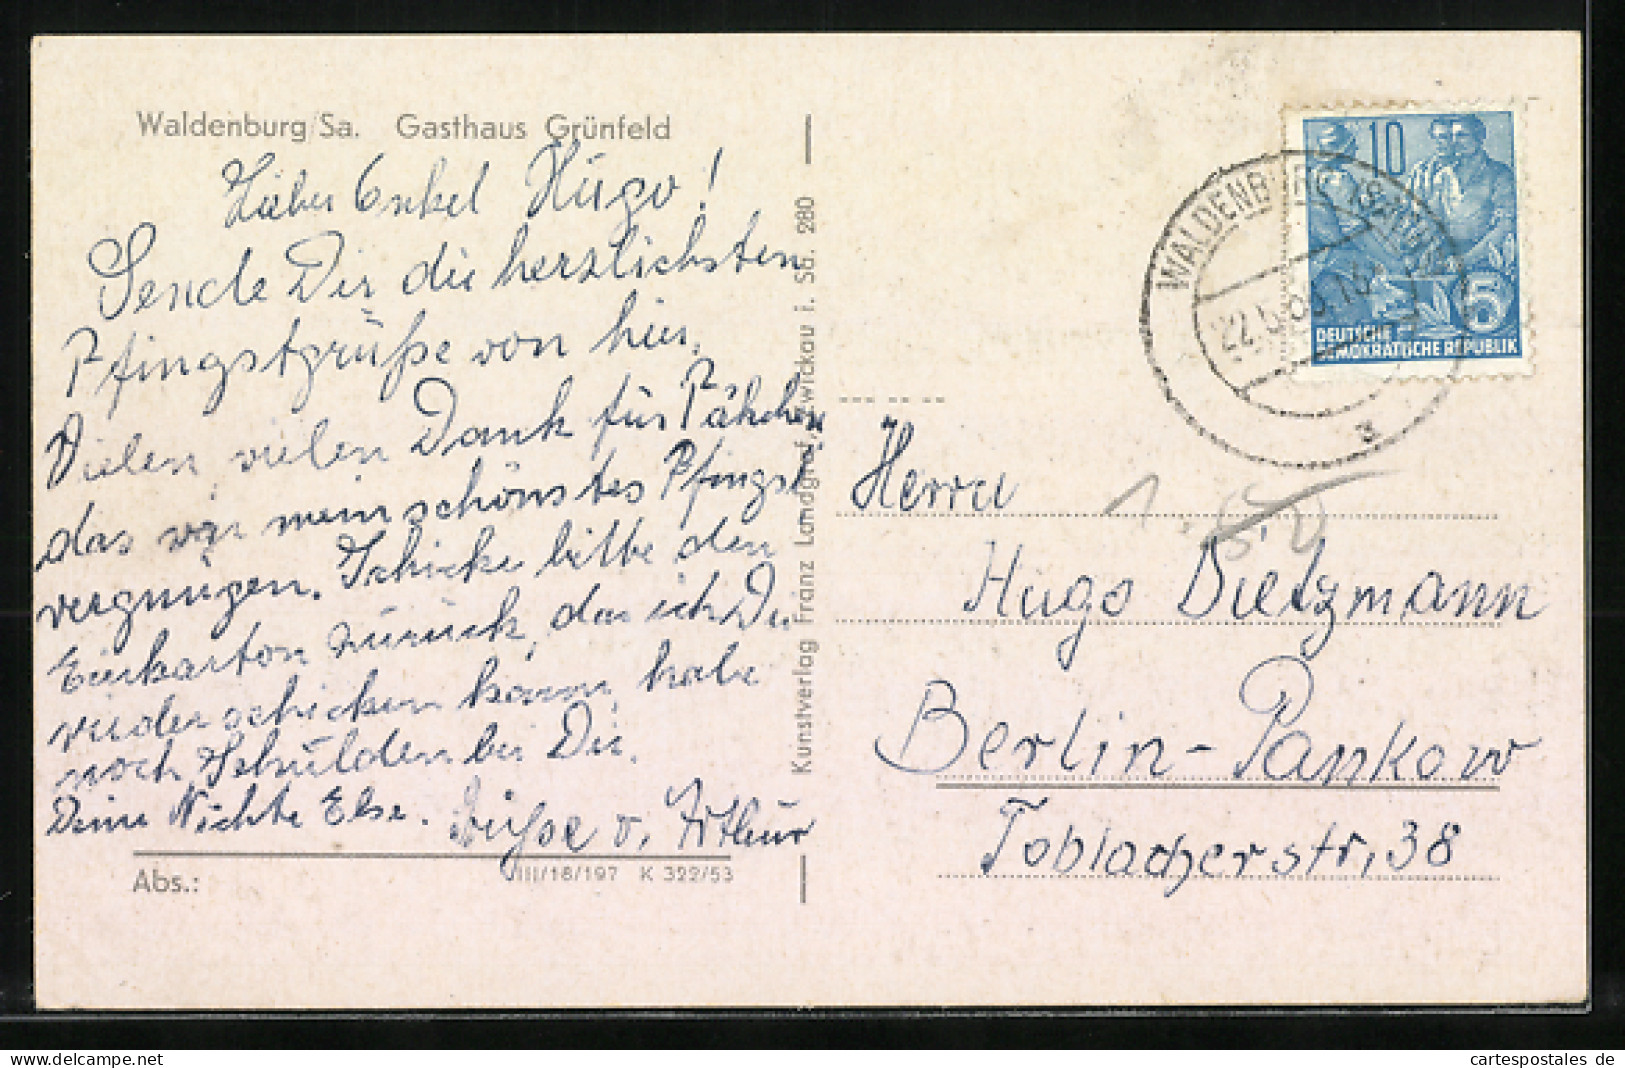 Waldenburg/Sa. Gasthaus Grünfeld
Lieber Onkel Hugo!
Sende Dir die herzlichsten
Pfingstgrüße von hier.
Vielen, vielen Dank für Päkchen,
das war mein schönstes Pfingst
vergnügen. Schicke bitte den
Eierkarton zurück, das ich Dir
wieder schicken kann, habe
noch Schulden bei Dir.
Deine Nichte Else. Grüße v. Arthur
Abs.:
III/18/197 K 322/53
Kunstverlag Franz Landgraf, Zwickau i. Sa. 280
10
5
DEUTSCHE
DEMOKRATISCHE REPUBLIK
WALDENBURG (SACHS)
22.5.
a
Herrn
Hugo Dietzmann
Berlin-Pankow
Toblacherstr. 38
www.cartespostales.de
cartespostales de